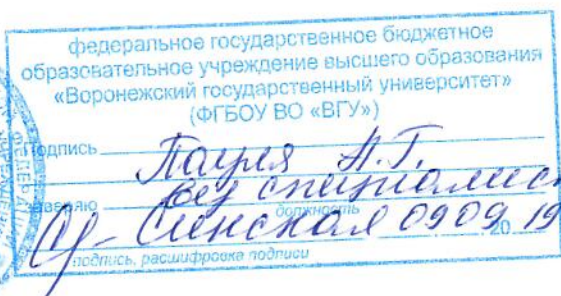 федеральное государственное бюджетное
образовательное учреждение высшего образования
«Воронежский государственный университет»
(ФГБОУ ВО «ВГУ»)
Подпись Пауля А.Г.
заверяю вед специалист
должность
Синская 09 09 20 19
подпись, расшифровка подписи